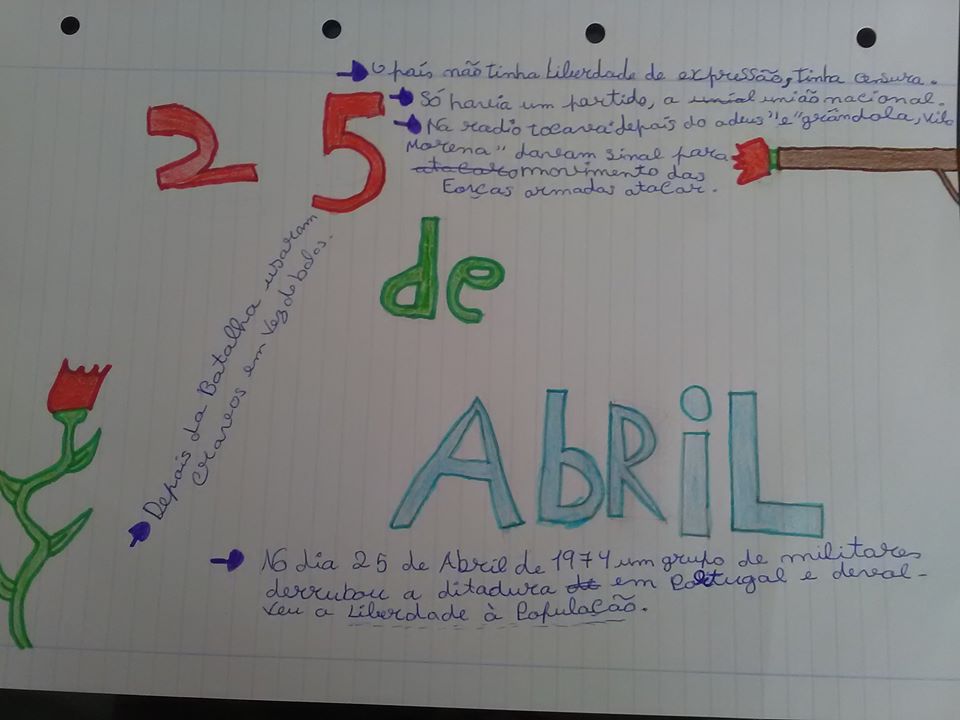 O país não tinha Liberdade de expressão, tinha censura.
Só havia um partido, a unial união nacional.
Na radio tocava "depois do adeus" e "grândola, vila
Morena" davam sinal para
atacar o movimento das
Forças armadas atacar.
25
de
AbRiL
Depois da Batalha usaram
cravos em vez de balas.
No dia 25 de Abril de 1974 um grupo de militares
derrubou a ditadura de em Portugal e devol-
veu a Liberdade à População.